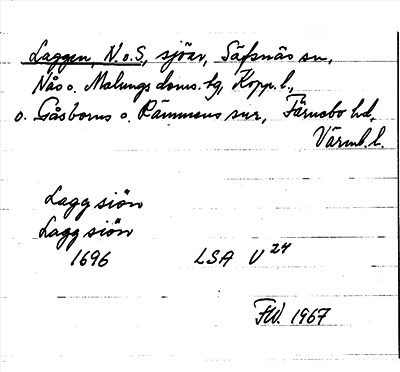 Laggen, N. o. S, sjöar, Säfsnäs sn,
Nås o. Malungs doms. tg, Kopp. l.,
o. Gåsborns o. Rämmens snr, Färnebo hd,
Värml. l.
Lagg siön
Lagg siön
1696 LSA U 24
FW. 1967